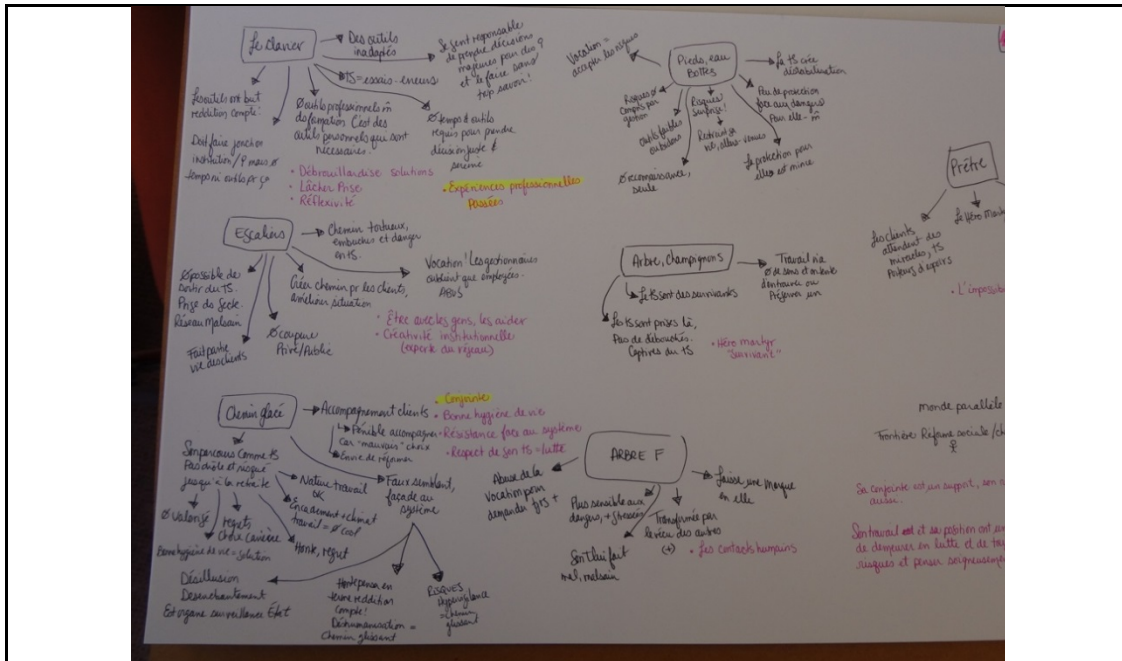 Le Clavier
Des outils
inadaptés
Se sent responsable
de prendre décisions
majeures pour des
et le faire sans
trop savoir!
TS = essais-erreurs
Les outils ont but
reddition compte.
Doit faire jonction
institution/
temps ni outils pr ça
Ø outils professionnels
da formation C'est des
outils personnels qui sont
nécessaires.
Ø temps & outils
requis pour prendre
décision juste &
sereine
• Débrouillardise solutions
• Lâcher Prise
• Réflexivité
• Expériences professionnelles
Passées
Pieds, eau
Bottes
Vocation =
accepter les risques
Le TS crée
déstabilisation
Risques Ø
compris par
gestion
outils faibles
Risques
surprise!
Pas de protection
face aux dangers
Pour elle-m̂
Ø reconnaissance,
seule
La protection pour
elles est mince
Prêtre
Les clients
attendent des
miracles, TS
Porteurs d'espoirs
Le Héro Mart
• L'impossib
Escaliers
Chemin tortueux,
embûches et danger
en TS.
Vocation! Les gestionnaires
oublient que employées.
ABUS
Ø possible de
sortir du TS.
Prise do Secte.
Réseau Malsain
Créer chemin pr les clients,
améliorer situation
Fait partie
vie des clients
Ø coupure
Privé/Public
• Être avec les gens, les aider
• Créativité institutionnelle
(experte du réseau)
Arbre, champignons
Les TS sont des survivants
Travail n'a
Ø de sens
Les TS sont prises là,
Pas de débouchés.
Captives du TS
• Héro martyr
"survivant"
Chemin glacé
Accompagnement clients
Pénible accompagner
Car "mauvais" choix
Envie de réformer
• Conjointe
• Bonne hygiène de vie
• Résistance face au système
• Respect de son TS = lutte
Son parcours Comme TS
Pas drôle et risqué
jusqu'à la retraite
Nature travail
OK
Encadrement + climat
travail = Ø cool
Faux semblant,
façade du
système
Ø valorisé
regrets
choix carrière
Honte, regret
Bonne hygiène de vie = solution
Désillusion
Desenchantement
Est organe surveillance État
Honte penser en
terme reddition
compte!
Déshumanisation =
Chemin glissant
RISQUES
Hypervigilance
= chemin
glissant
ARBRE F
Abuse de la
vocation pour
demander tjrs +
Laisse une marque
en elle
Plus sensible aux
dangers, + stressée
Transformée par
le vécu des autres
(+)
• Les contacts humains
Son T lui fait
mal, malsain
monde parallèle
Frontière Réforme sociale/ch
Sa conjointe est un support, son
aussi.
Son travail et sa position ont
de demeurer en lutte et de
risques et penser soigneusemen